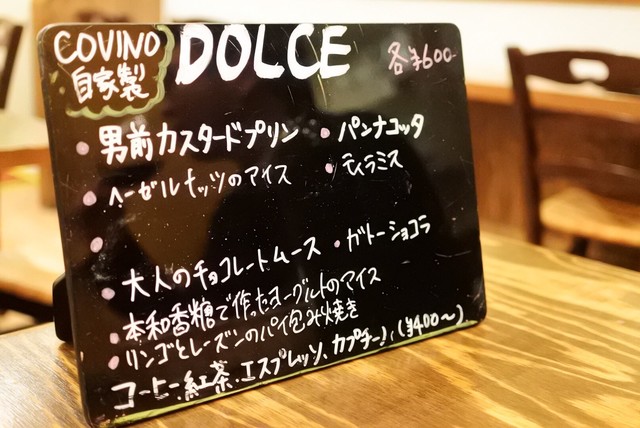 COVINO
自家製
DOLCE
各¥600-
・男前カスタードプリン ・パンナコッタ
・ヘーゼルナッツのアイス ・ティラミス
・
・大人のチョコレートムース ・ガトーショコラ
・本和香糖で作ったヨーグルトのアイス
・リンゴとレーズンのパイ包み焼き
コーヒー、紅茶、エスプレッソ、カプチーノ、(¥400〜)